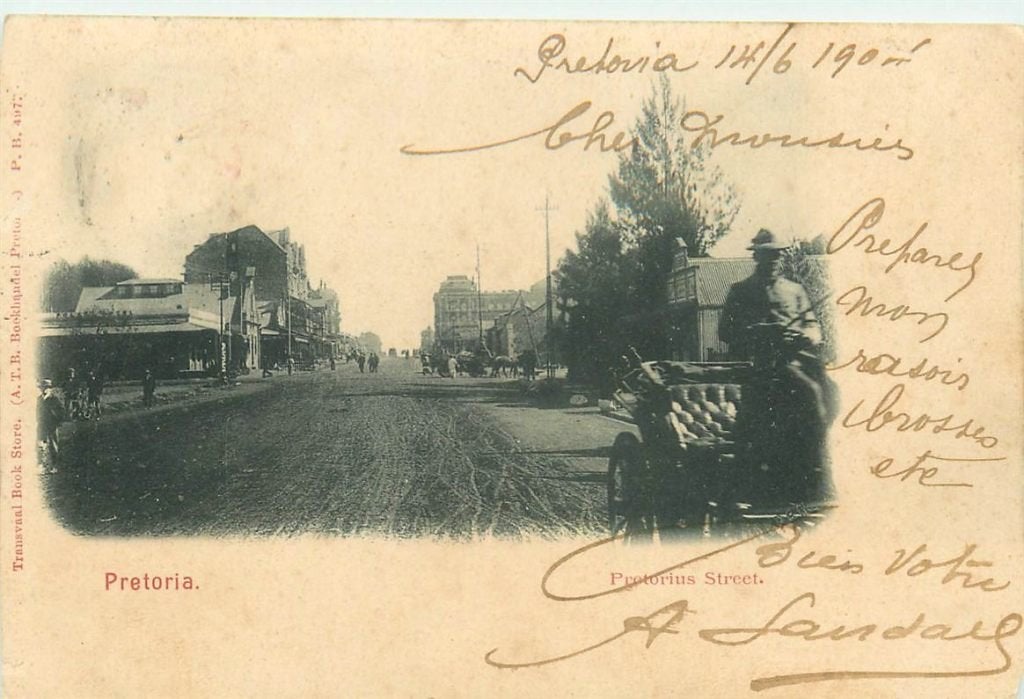 Pretoria 14/6 190
Cher Monsieur
Preparez
mon
rasoir
brosses
etc
Bien Votre
A
Pretoria.
Pretorius Street.
Transvaal Book Store. (A. T. B. Boekhandel Pretor P. B. 497